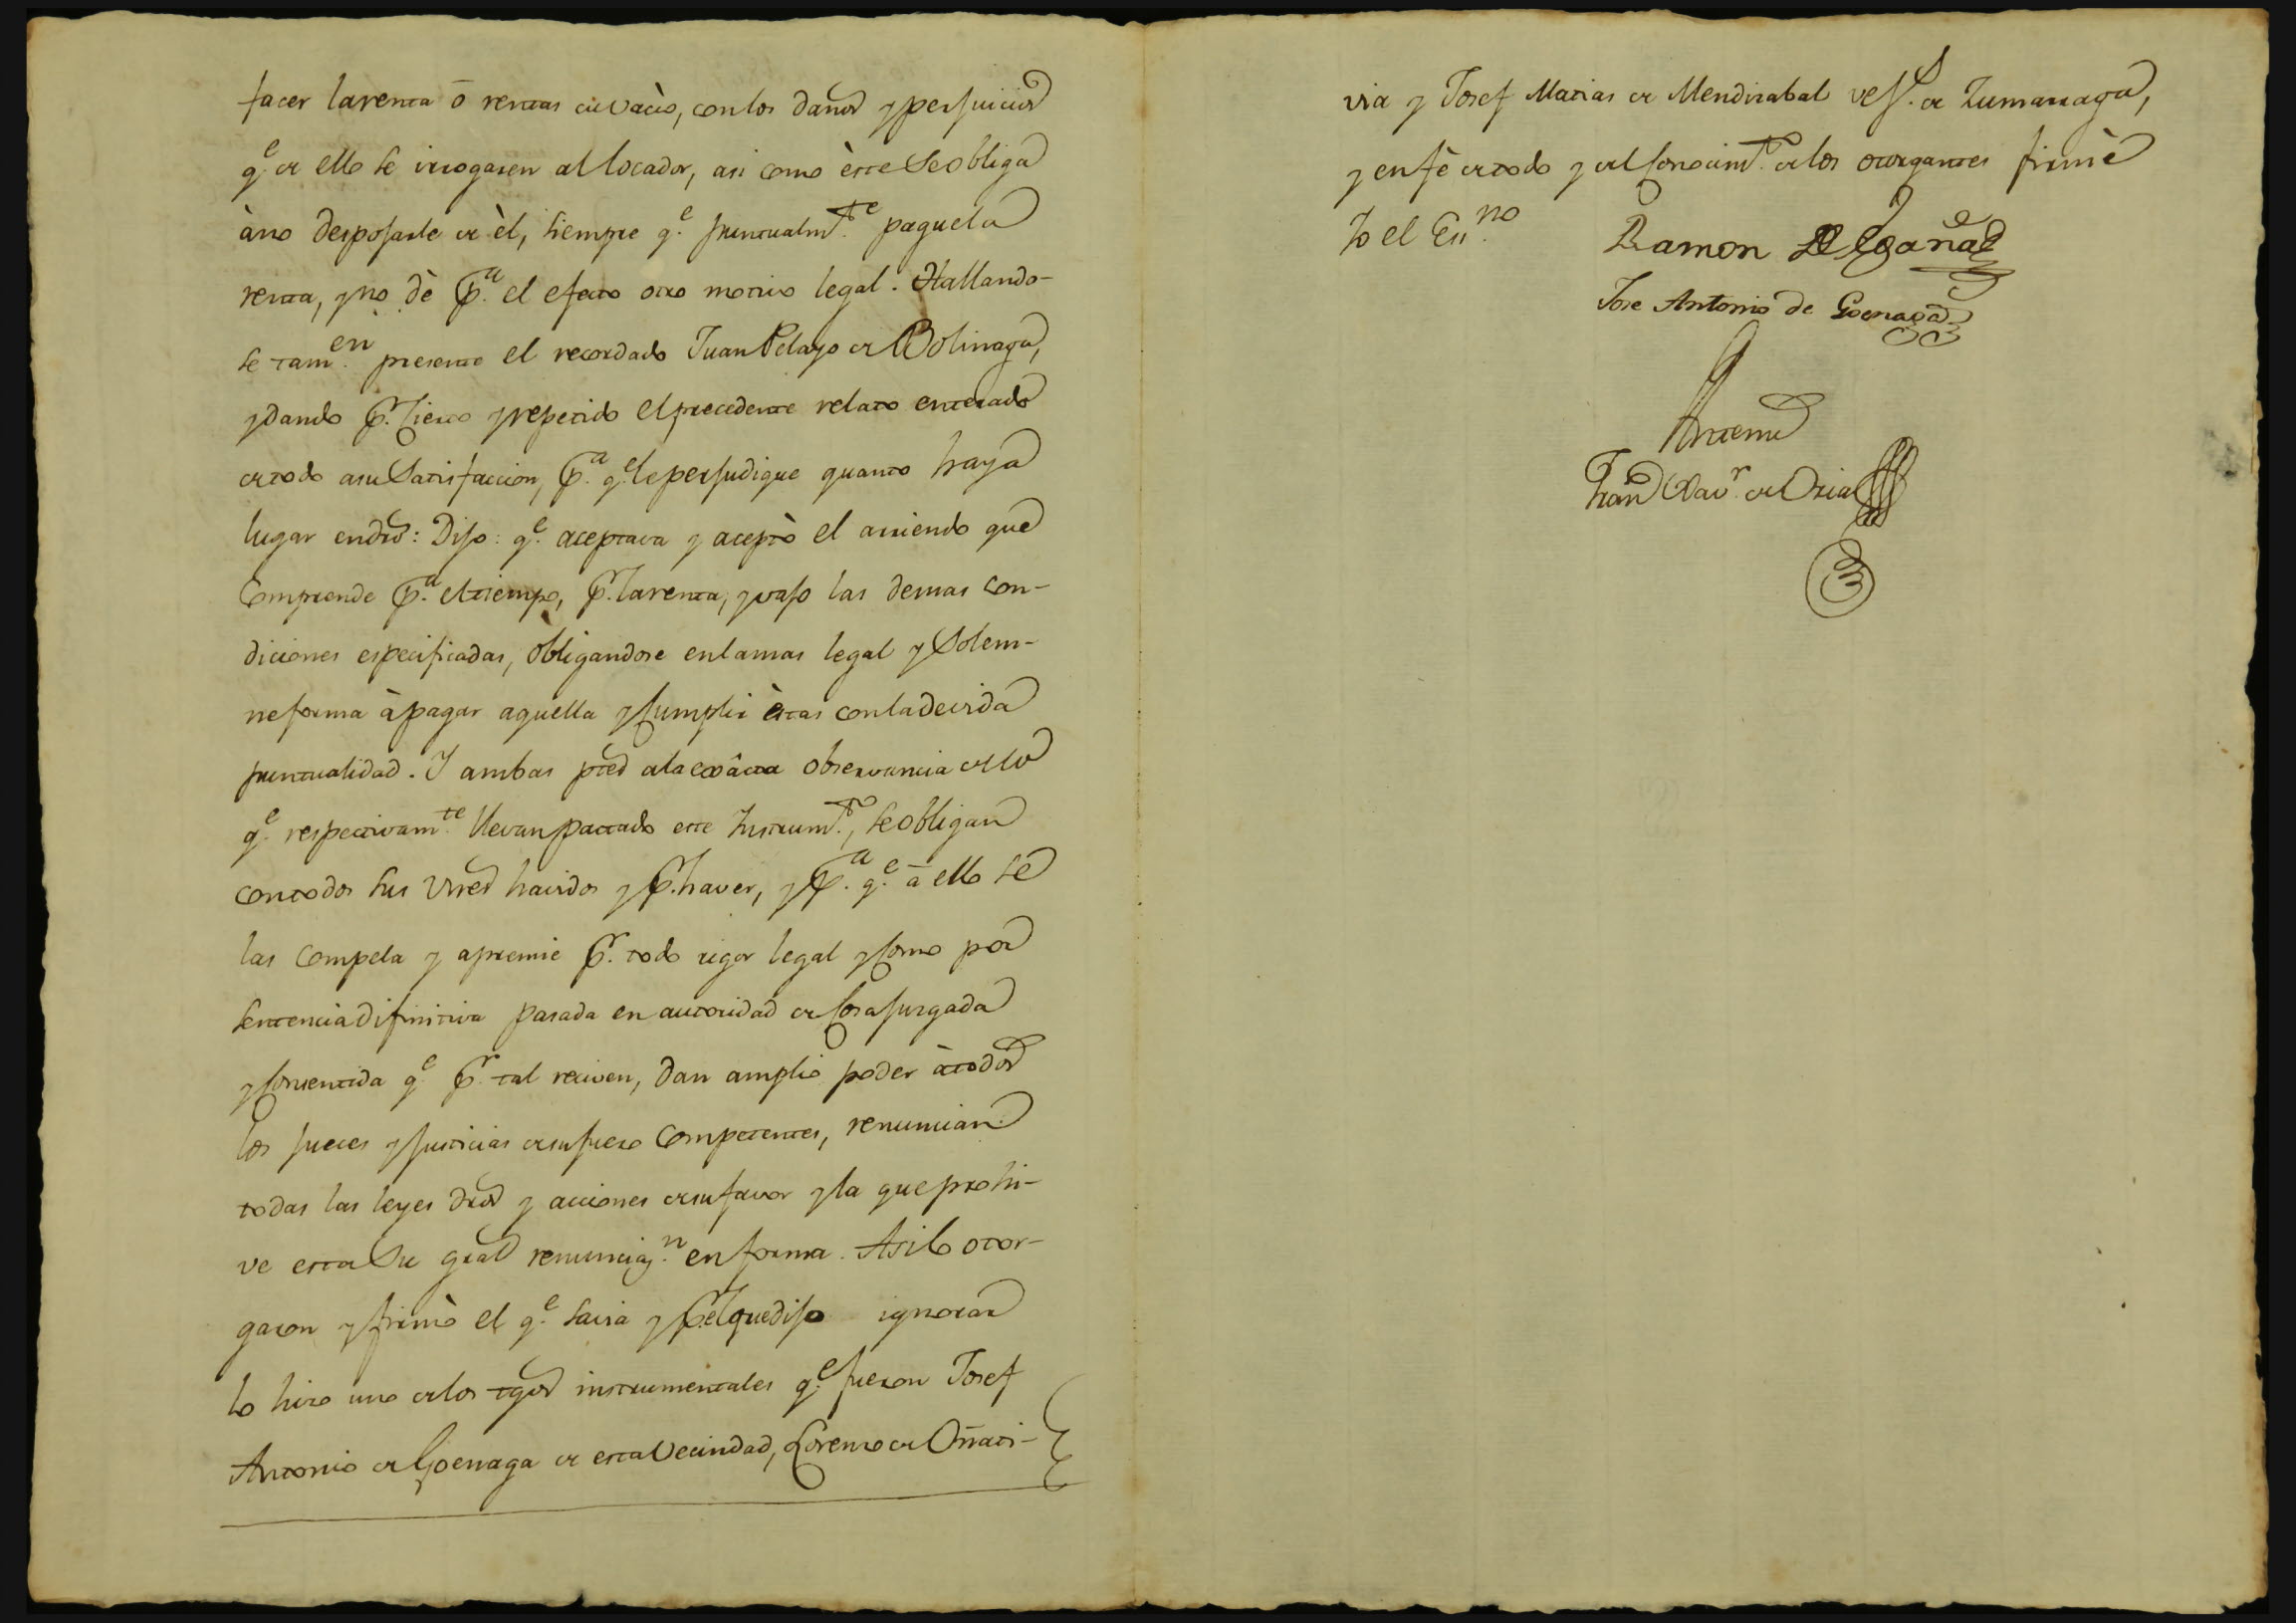 facer la renta ō rentas de vacio, con los daños y perjuicios
q.e de ello se irrogasen al locador, asi como èste se obliga
à no despojarle de èl, siempre q.e puntualm.te pague la
renta, y no dè p.a el efecto otro motivo legal. Hallando-
se tam.en presente el recordado Juan Pelayo de Bolinaga,
y dando p.r cierto y repetido el precedente relato enterado
de todo a su satisfaccion, p.a q.e le perjudique quanto haya
lugar en dro: Dijo: q.e aceptava y aceptò el arriendo que
comprende p.a el tiempo, p.r la renta, y vajo las demas con-
diciones especificadas, obligandose en la mas legal y solem-
ne forma à pagar aquella y cumplir èstas con la devida
puntualidad. Y ambas ptes a la exâcta observancia de lo
q.e respectivam.te llevan pactado este Instrum.to, se obligan
con todos sus vnes havidos y p.r haver, y p.a q.e ā ello se
las compela y apremie p.r todo rigor legal y como por
sentencia difinitiva pasada en autoridad de cosa jurgada
y consentida q.e p.r tal reciven, dan amplio poder à todos
los jueces y justicias de su fuero competentes, renuncian
todas las leyes dros y acciones de su favor y la que prohi-
ve esta su gral renunciaz.n en forma. Asi lo otor-
garon y firmò el q.e savia y p.r el que dijo ignorar
lo hizo uno de los tgos instrumentales q.e fueron Josef
Antonio de Goenaga de esta vecindad, Lorenzo de Oñati-
via y Josef Matias de Mendizabal vez.s de Zumarraga,
y en fè de todo y del conocim.to de los otorgantes firmè
Yo el Es.no
Ramon de Egaña
Jose Antonio de Goenaga
Antemi
Fran Xav.r de Oria